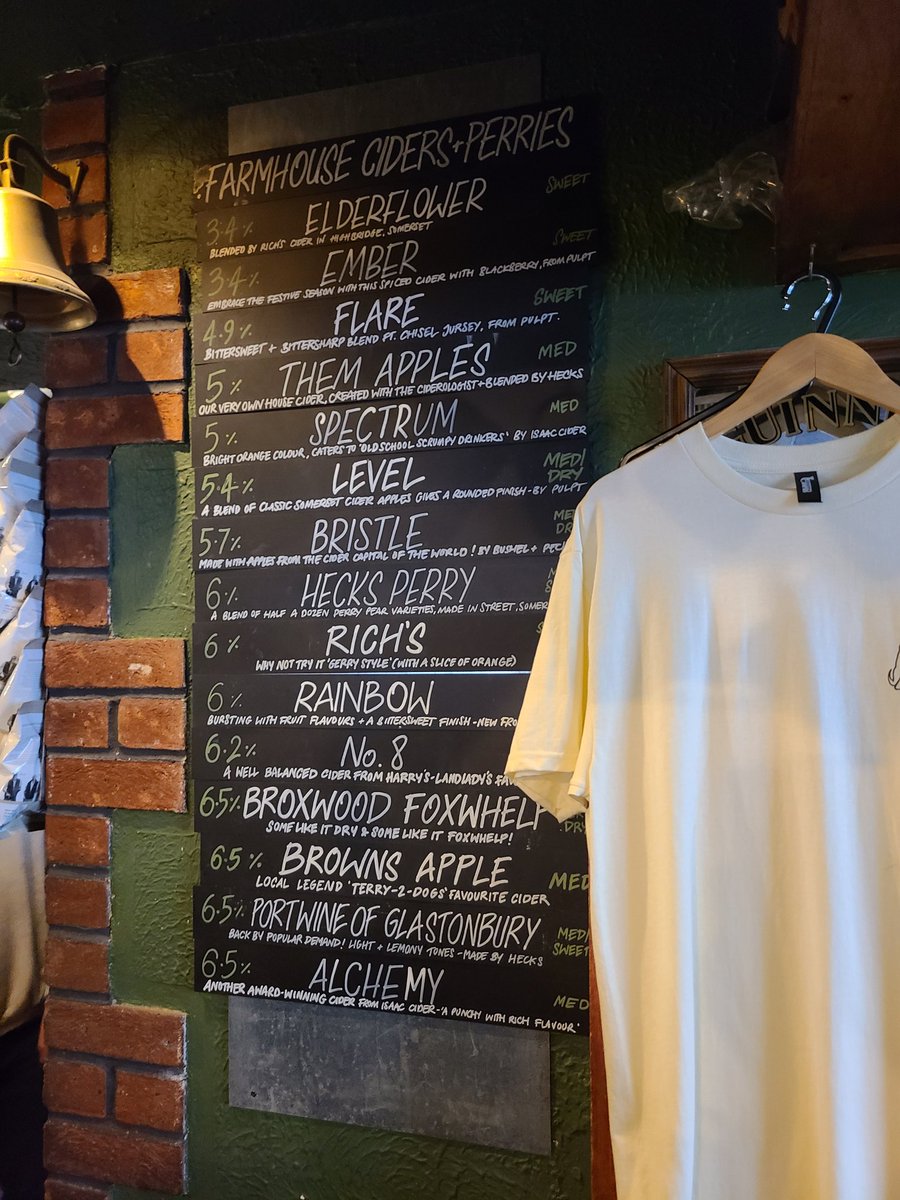 FARMHOUSE CIDERS + PERRIES
3.4% ELDERFLOWER SWEET
BLENDED BY RICH'S CIDER IN HIGHBRIDGE, SOMERSET
3.4% EMBER SWEET
EMBRACE THE FESTIVE SEASON WITH THIS SPICED CIDER WITH BLACKBERRY, FROM PULPT
4.9% FLARE SWEET
BITTERSWEET + BITTERSHARP BLEND FT. CHISEL JURSEY, FROM PULPT.
5% THEM APPLES MED
OUR VERY OWN HOUSE CIDER, CREATED WITH THE CIDEROLOGIST + BLENDED BY HECKS
5% SPECTRUM MED
BRIGHT ORANGE COLOUR, CATERS TO 'OLD SCHOOL SCRUMPY DRINKERS' BY ISAAC CIDER
5.4% LEVEL MED/DRY
A BLEND OF CLASSIC SOMERSET CIDER APPLES GIVES A ROUNDED FINISH - BY PULPT
5.7% BRISTLE
MADE WITH APPLES FROM THE CIDER CAPITAL OF THE WORLD! BY BUSHEL + PEC
6% HECKS PERRY
A BLEND OF HALF A DOZEN PERRY PEAR VARIETIES, MADE IN STREET, SOMER
6% RICH'S
WHY NOT TRY IT 'GERRY STYLE' (WITH A SLICE OF ORANGE)
6% RAINBOW
BURSTING WITH FRUIT FLAVOURS + A BITTERSWEET FINISH - NEW FRO
6.2% No. 8
A WELL BALANCED CIDER FROM HARRY'S - LANDLADY'S FA
6.5% BROXWOOD FOXWHELP DRY
SOME LIKE IT DRY & SOME LIKE IT FOXWHELP!
6.5% BROWNS APPLE MED
LOCAL LEGEND 'TERRY-2-DOGS' FAVOURITE CIDER
6.5% PORTWINE OF GLASTONBURY MED/SWEET
BACK BY POPULAR DEMAND! LIGHT + LEMONY TONES - MADE BY HECKS
6.5% ALCHEMY MED
ANOTHER AWARD-WINNING CIDER FROM ISAAC CIDER - 'A PUNCHY WITH RICH FLAVOUR'
GUINN